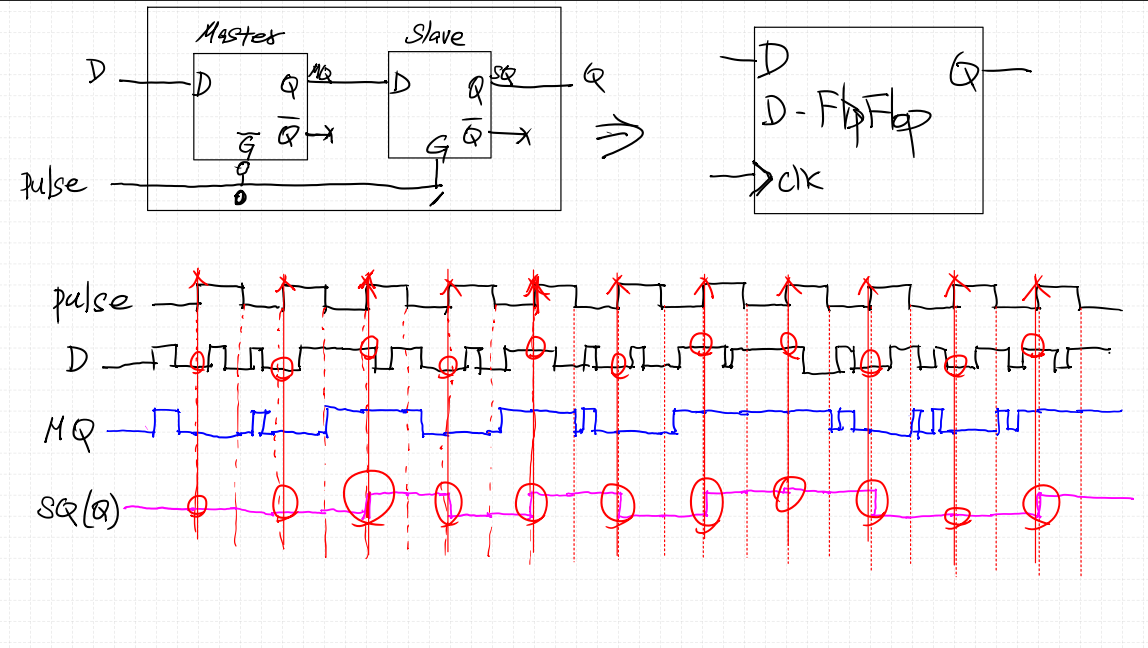 Master Slave
D D Q MQ D Q SQ Q
G̅ Q̅ G Q̅
0 1
pulse
D Q
D-FlipFlop
clk
pulse
D
MQ
SQ(Q)